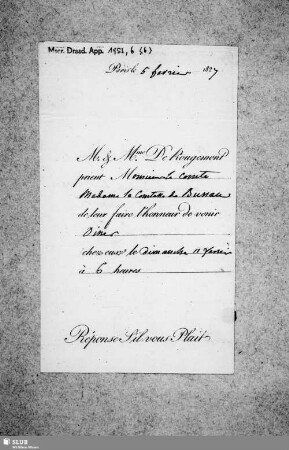 Mscr. Dresd. App. 1952, 6 (6)
Paris le 5 fevrier 1827
M. & Mme De Rougemont
prient Monsieur Le Comte
Madame la Comtesse de Bussau
de leur faire l'honneur de venir
Diner
chez eux le Dimanche 11 fevrier
à 6 heures
Réponse S'il vous Plait
SLUB
Wir führen Wissen.